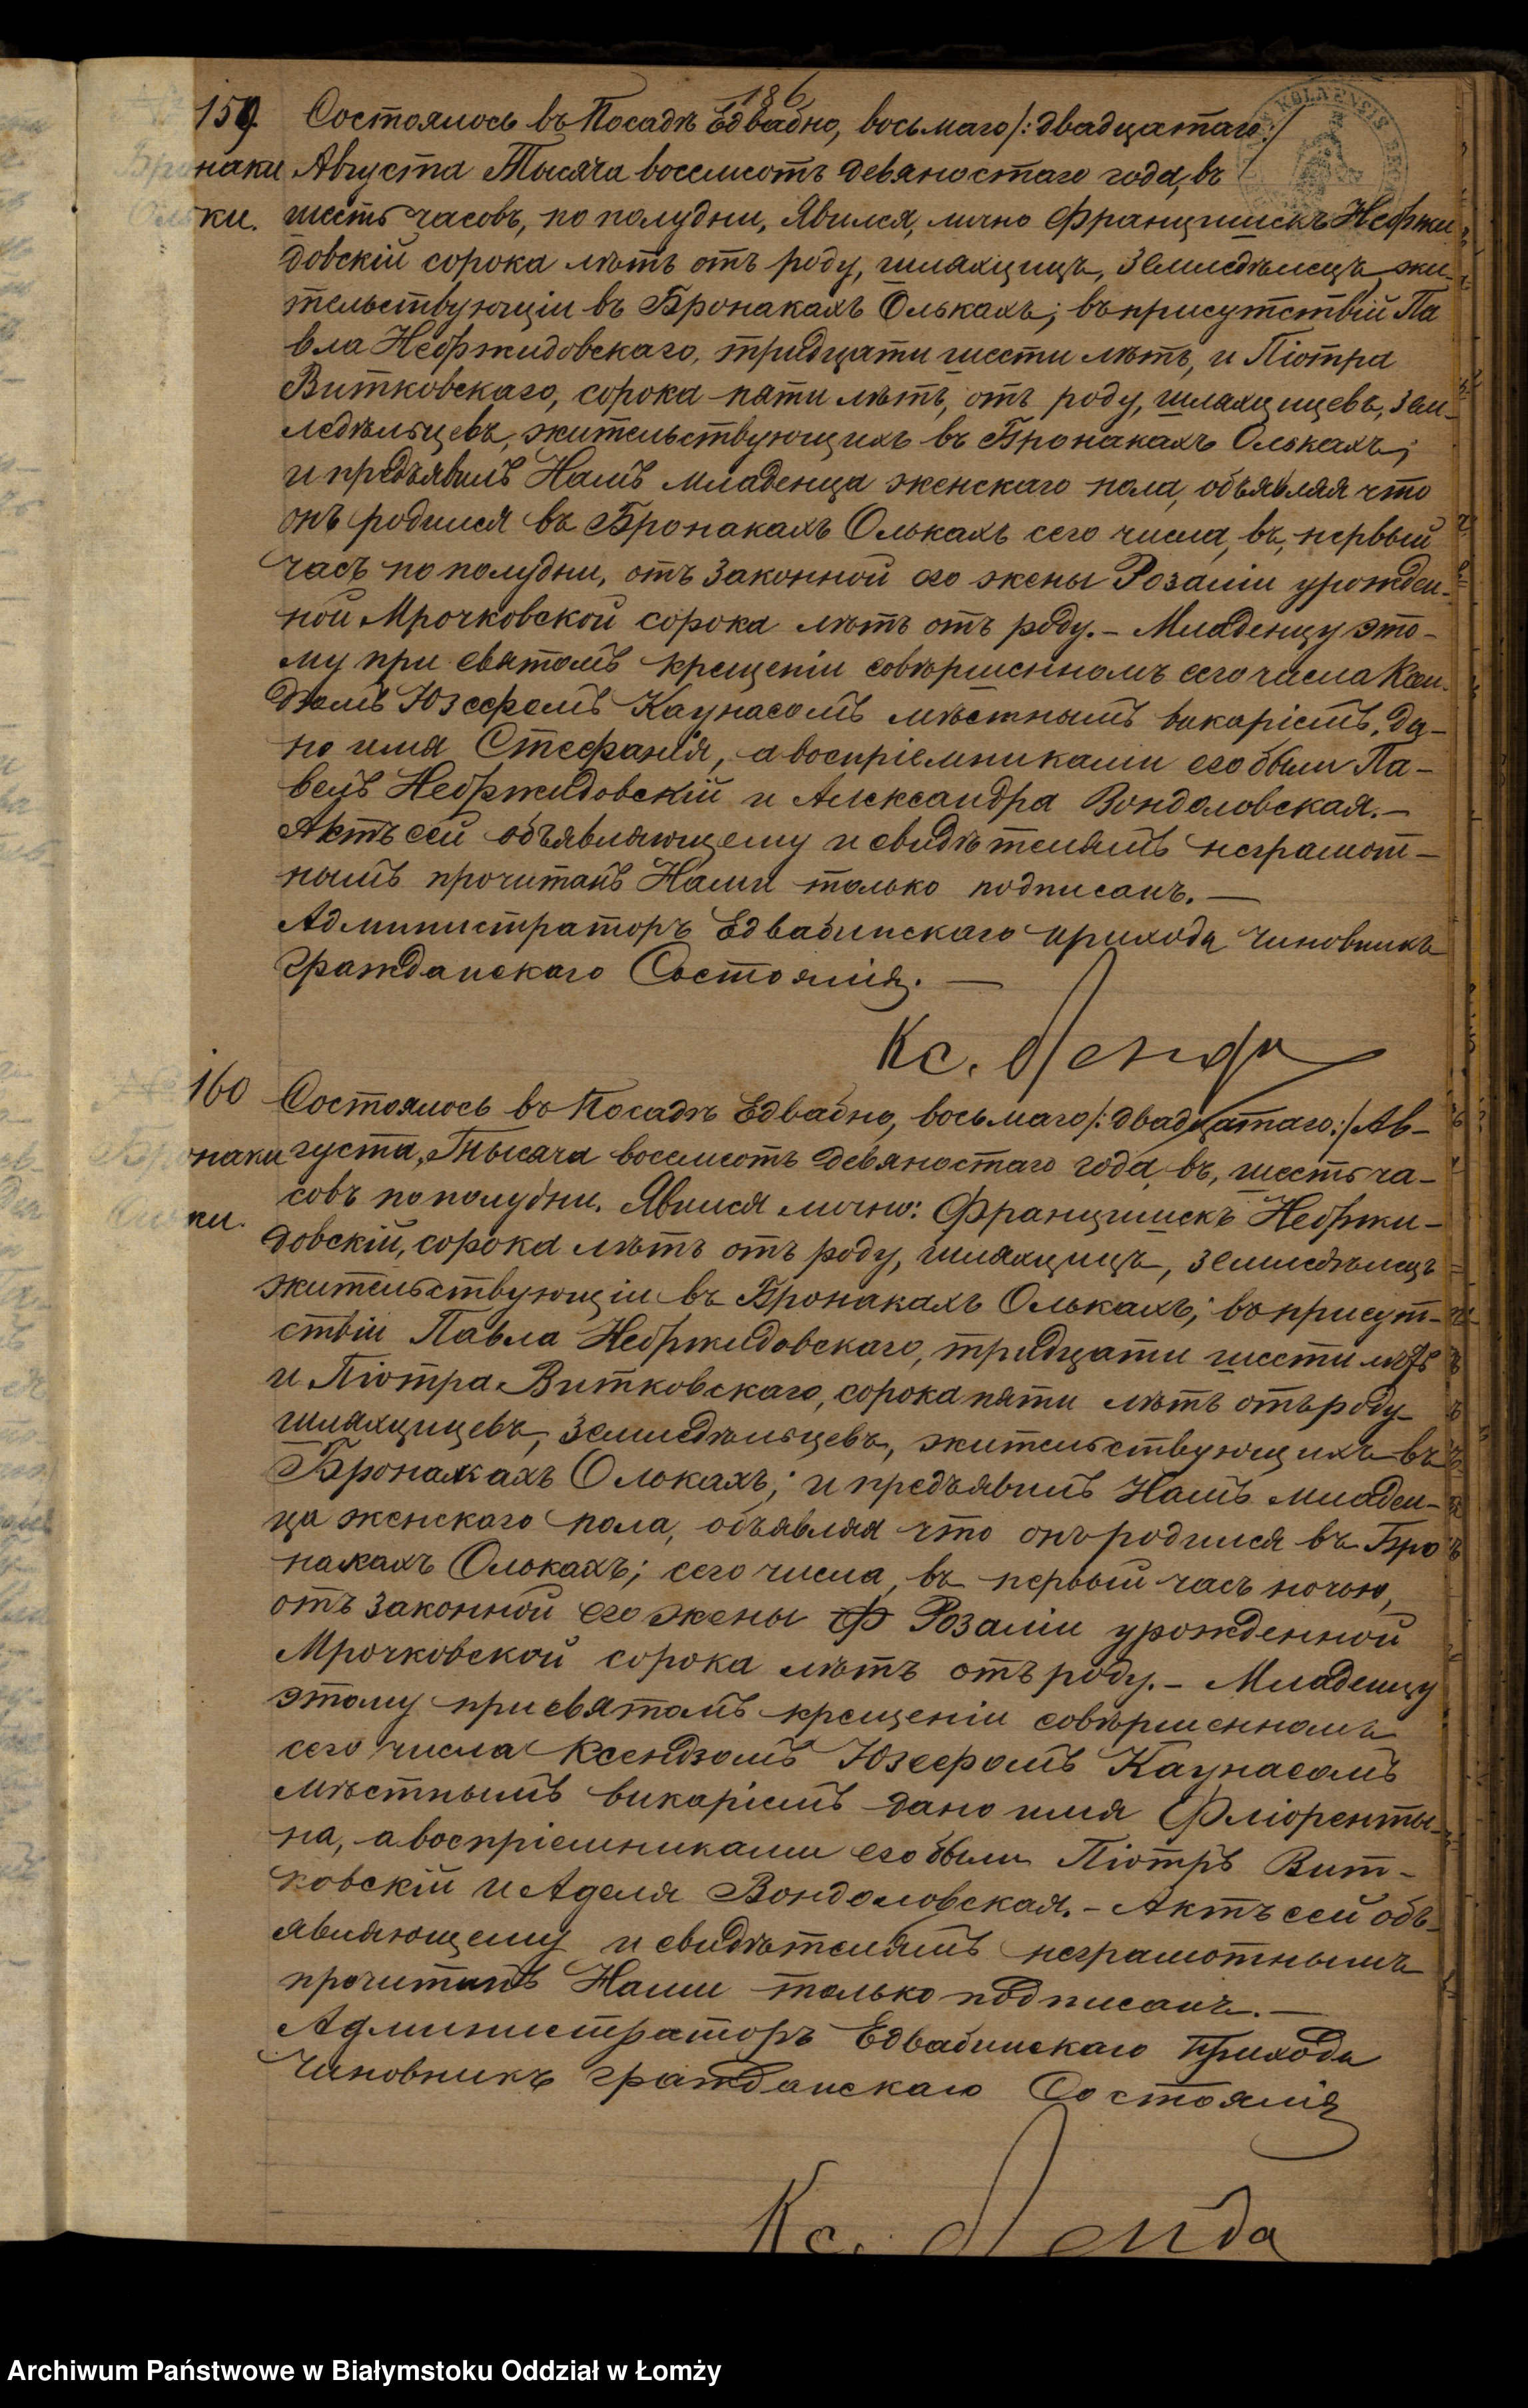 186
159. Состоялось въ Посадѣ Едвабно, восьмаго /:двадцатаго:/
наки Августа Тысяча восемсотъ девяностаго года, въ
ки. шесть часовъ, по полудни, Явился, лично Францишекъ Небржи
довскій сорока лѣтъ отъ роду, шляхцицъ, земледѣлецъ жи-
тельствующій въ Бронакахъ Олькахъ; въ присутствій Па
вла Небржидовскаго, тридцати шести лѣтъ, и Піотра
Витковскаго, сорока пяти лѣтъ, отъ роду, шляхцицевъ, зем-
ледѣльцевъ, жительствующихъ въ Бронакахъ Олькахъ;
и предъявилъ Намъ младенца женскаго пола, объявляя что
онъ родился въ Бронакахъ Олькахъ сего числа, въ, первый
часъ по полудни, отъ законной его жены Розаліи урожден-
ной Мрочковской сорока лѣтъ отъ роду. – Младенцу это-
му при святомъ крещеніи совѣршенномъ сего числа Ксен-
дзомъ Юзефомъ Каунасомъ мѣстнымъ викаріемъ, да-
но имя Стефанія, а воспріемниками его были Па-
велъ Небржидовскій и Александра Вондоловская. –
Актъ сей объявляющему и свидѣтелямъ неграмот-
нымъ прочитанъ Нами только подписанъ. –
Администраторъ Едвабинскаго прихода Чиновникъ
Гражданскаго Состоянія. –
Кс.
160 Состоялось въ Посадѣ Едвабно, восьмаго /:двадцатаго:/ Ав-
наки густа, Тысяча восемсотъ девяностаго года, въ, шесть ча-
ки. совъ по полудни. Явился лично: Францишекъ Небржи-
довскій, сорока лѣтъ отъ роду, шляхцицъ, земледѣлецъ
жительствующій въ Бронакахъ Олькахъ; въ присут-
ствіи Павла Небржидовскаго, тридцати шести лѣтъ
и Піотра Витковскаго, сорока пяти лѣтъ отъ роду
шляхцицевъ, земледѣльцевъ, жительствующихъ въ
Бронакахъ Олькахъ; и предъявилъ Намъ младен-
ца женскаго пола, объявляя что онъ родился въ Бро
накахъ Олькахъ; сего числа, въ первый часъ ночью,
отъ законной его жены Ф Розаліи урожденной
Мрочковской сорока лѣтъ отъ роду. – Младенцу
этому при святомъ крещеніи совѣршенномъ
сего числа Ксендзомъ Юзефомъ Каунасомъ
мѣстнымъ викаріемъ дано имя Фліоренты-
на, а воспріемниками его были Піотръ Вит-
ковскій и Аделя Вондоловская. – Актъ сей объ-
являющему и свидѣтелямъ неграмотнымъ
прочитанъ Нами только подписанъ. –
Администраторъ Едвабинскаго Прихода
Чиновникъ Гражданскаго Состоянія
Кс.
Archiwum Państwowe w Białymstoku Oddział w Łomży